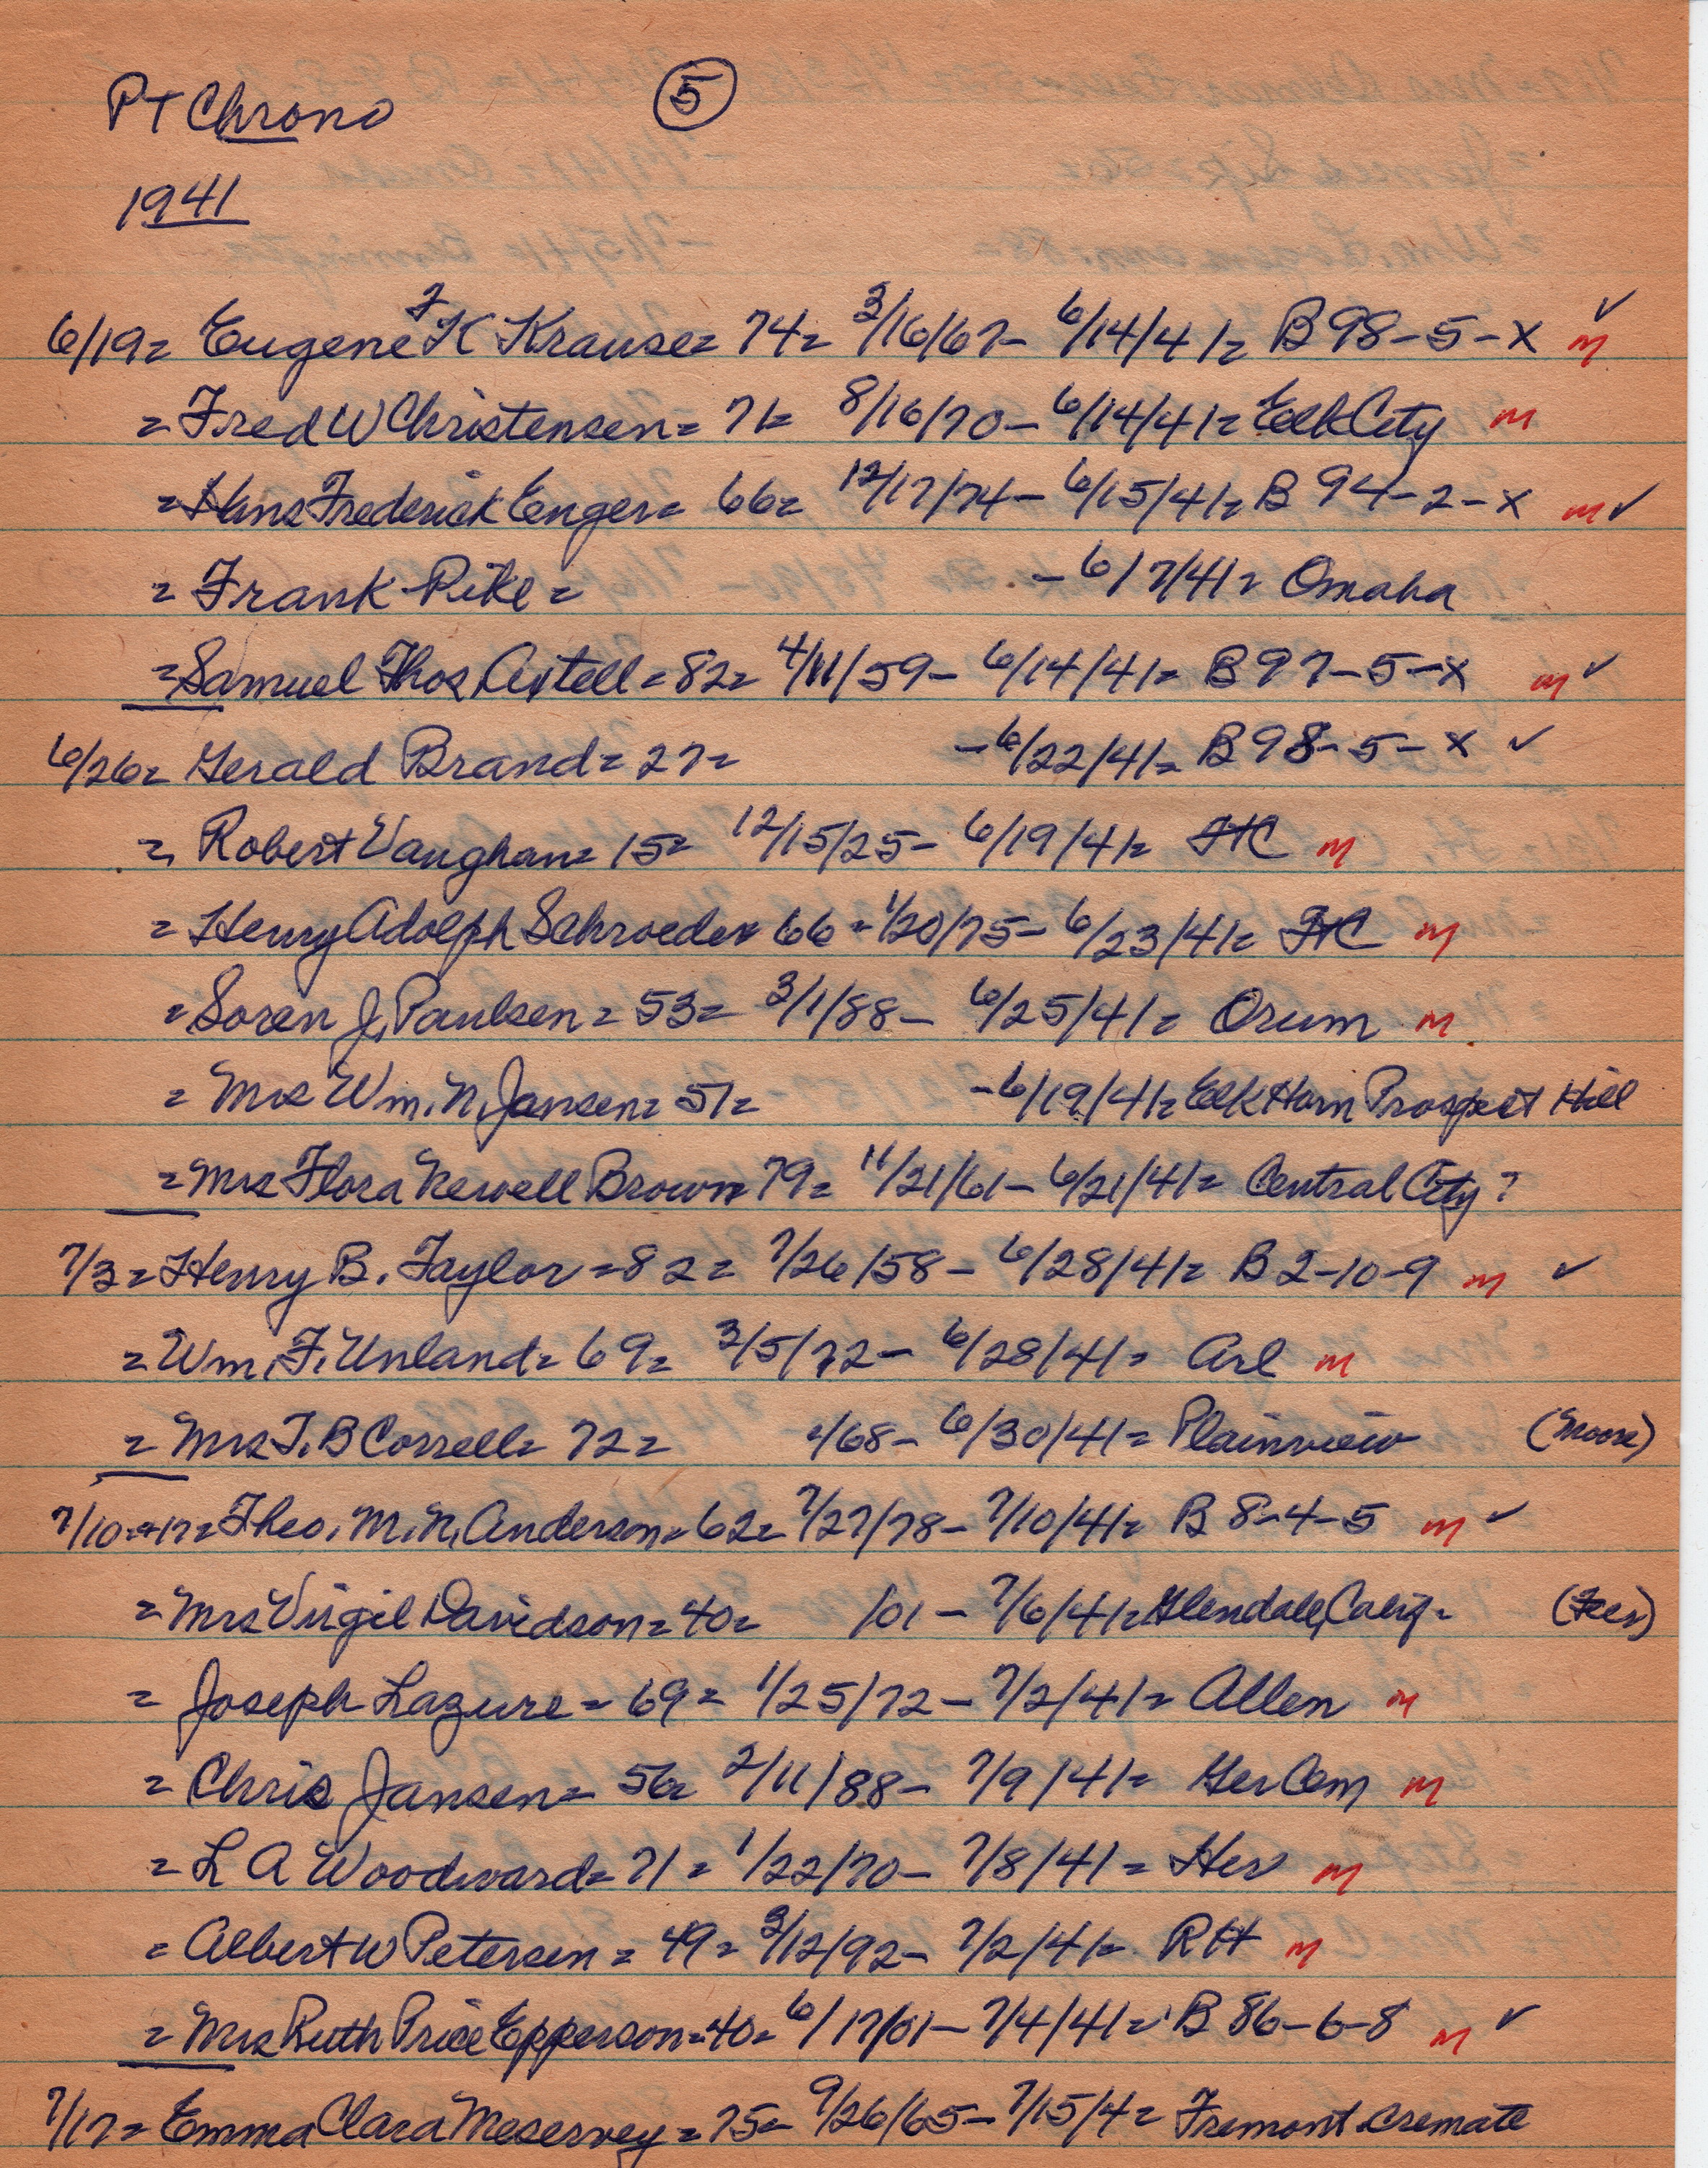 PT Chrono ⑤
1941
6/19= Eugene F K Krause= 74= 3/16/67- 6/14/41= B98-5-X m ✓
= Fred W Christensen= 71= 8/16/70- 6/14/41= Elk City m
= Hans Frederick Enger= 66= 12/17/74- 6/15/41= B 94-2-X m ✓
= Frank Pike= -6/7/41= Omaha
=Samuel Thos Axtell=82= 4/11/59- 6/14/41= B97-5-X m ✓
6/26= Gerald Brand=27= -6/22/41= B98-5-X ✓
= Robert Vaughan= 15= 12/15/25- 6/19/41= FtC m
= Henry Adolph Schroeder 66=1/20/75- 6/23/41= FtC m
= Soren J. Paulsen= 53= 3/1/88- 6/25/41= Orum m
= Mrs Wm. N. Jansen= 51= -6/19/41= Elk Horn Prospect Hill
=Mrs Flora Newell Brown 79= 11/21/61- 6/21/41= Central City?
7/3= Henry B. Taylor=82= 7/26/58- 6/28/41= B2-10-9 m ✓
= Wm. F. Unland= 69= 3/5/72- 6/28/41= Arl m
= Mrs T.B Correll= 72= /68- 6/30/41= Plainview (Moore)
7/10+17=Theo. M. N. Anderson=62= 7/27/78- 7/10/41= B 8-4-5 m ✓
= Mrs Virgil Davidson=40= /01- 7/6/41=Glendale, Calif. (Fees)
= Joseph Lazure= 69= 1/25/72- 7/2/41= Allen m
= Chris Jansen= 56= 2/11/88- 7/9/41= Ger Cem m
= L A Woodward= 71= 1/22/70- 7/8/41= Her m
= Albert W Petersen= 49= 3/12/92- 7/2/41= RH m
=Mrs Ruth Price Epperson=40= 6/17/01- 7/4/41= B 86-6-8 m ✓
7/17= Emma Clara Meservey=75= 9/26/65- 7/15/4= Fremont cremate